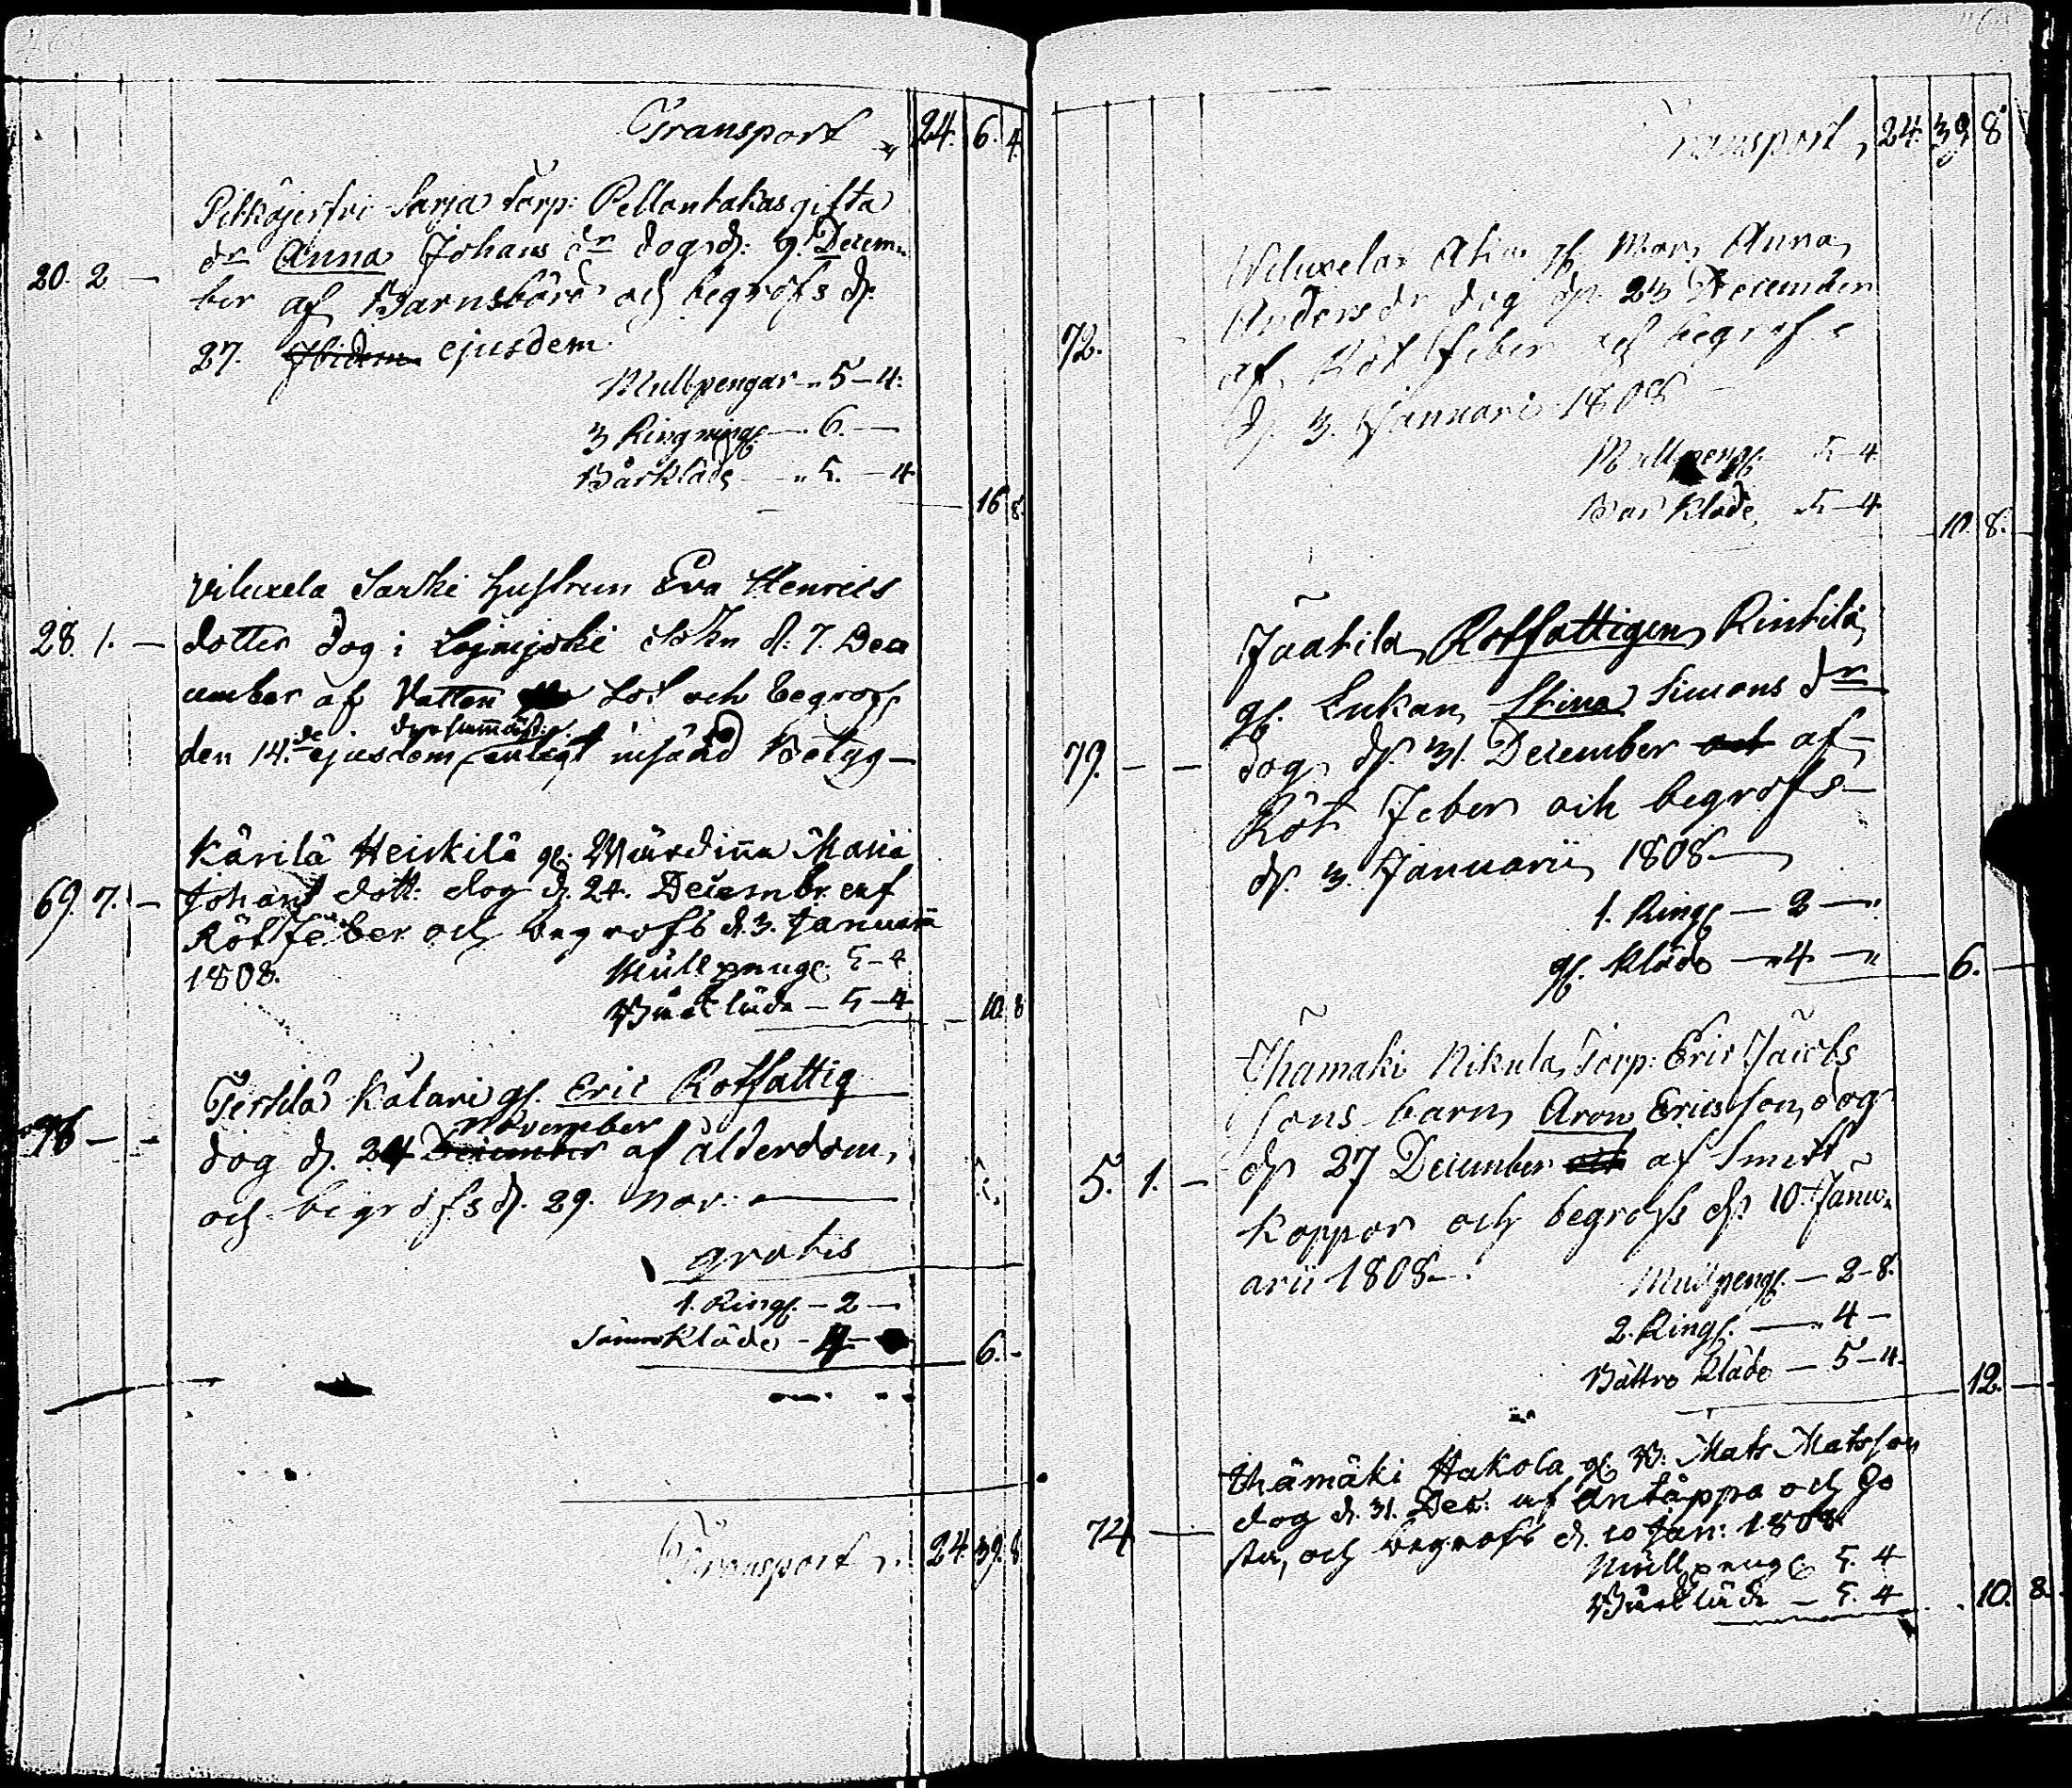 Transport „ 24. 6. 4.
Pilkäjerfvi Sarja Torp: Pellontakas gifta
dr Anna Johans dr dog d. 9. Decem-
20. 2 — ber af Barnsbörd och begrofs d.
27. Ibidem ejusdem.
Mullpengar „ 5-4.
3 Ringning — 6. —
Bårkläde — „ 5. — 4
16 8.
Viluxela Sarki Hustrun Eva Henrics
28. 1. — dotter dog i Sokn d: 7. Dece
ember af Vatten Sot och begrofs
den 14.de ejusdem enligt insänd Betyg —
Kärilä Heikkilä gl. Wärdinna Maria
69. 7. — Johans dott: dog d. 24. Decembr. af
Röt feber och begrofs d. 3. Januarii
1808. Mullpeng. 5-4
Bårkläde — 5-4 10. 8
Terttilä Katari gl. Eric Rotfattig
November
76 — — dog d. 24 December af ålderdom,
och begrofs d. 29. Nov: —
gratis
1. Ring. — 2 —
Sämre Kläde - 4 —
6. -
Transport „ 24. 39. 8.
Transport „ 24. 39. 8
Viluxela gl. Mor, Anna
Anders dr dog d. 23 December
72. af Röt feber och begrofs
d. 3. Januari 1808 —
Mullpeng. 5-4
Bår Kläde, 5-4
10. 8.
Jaatila, Rotfattigen Rintilä
gl. Enkan, Stina Simons dr
79. — — dog d. 31. December och af
Röt Feber och begrofs —
d. 3. Januarii 1808 —
1. Ring. — 2 — „
gl. Kläde — „ 4 — „
6. —
Ihamäki Nikula, Torp: Eric Jacobs
sons barn, Aron Ericsson, dog
5. 1. — d. 27 December och af Smitt
koppor och begrofs d. 10 Janu-
arii 1808 —. Mullpeng. — 2-8.
2. Ring. — „ 4 —
Bättre Kläde — 5-4.
12. —
Ihämäki Hakola gl. W: Mats Matsson
dog d. 31. Dec: af Andtäppa och Ho
74 — sta, och begrofs d. 10 Jan: 1808
Mullpeng. 5. 4
Bårkläde — 5. 4
10. 8.